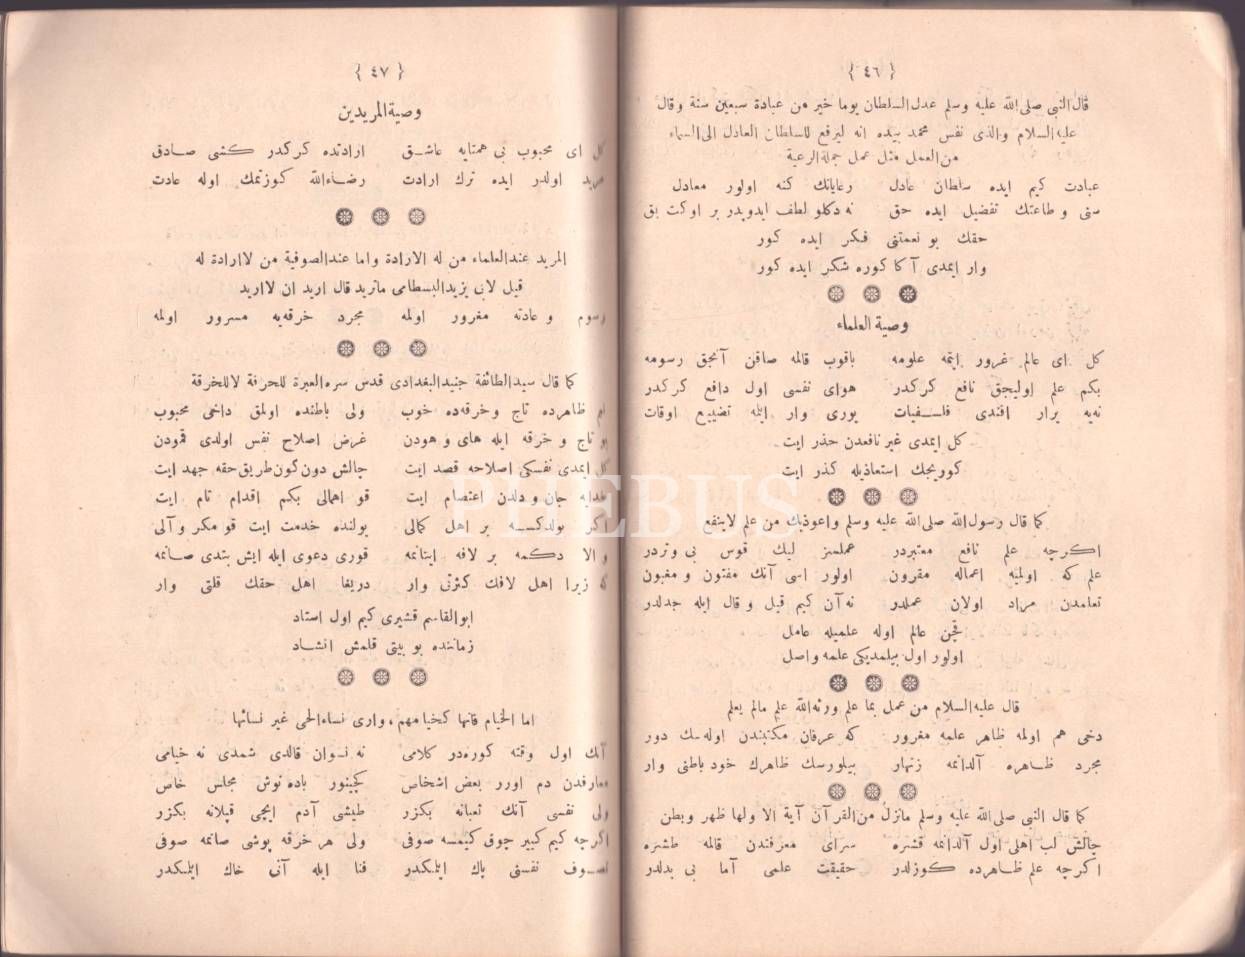 { ٤٦ }
قال النبي صلى الله عليه وسلم عدل السلطان يوما خير من عبادة سبعين سنة وقال
عليه السلام والذى نفس محمد بيده انه ليرفع للسلطان العادل الى السماء
من العمل مثل عمل جملة الرعية
عبادت كيم ايده سلطان عادل رعايانك كنه اولور معادل
سنى وطاعتك تفضيل ايده حق نه دكلو لطف ايدوپدر بر اوكت بق
حقك بو نعمتنى فكر ايده كور
وار ايمدى آكا كوره شكر ايده كور
وصية العلماء
كل اى عالم غرور ايتمه علومه باقوب قالمه صاقن آنجق رسومه
بكم علم اوليجق نافع كركدر هواى نفسى اول دافع كركدر
نه يه يرار افندى فلسفيات يورى وار ايله تضييع اوقات
كل ايمدى غير نافعدن حذر ايت
كوريجك استعاذيله كذر ايت
كما قال رسول الله صلى الله عليه وسلم واعوذبك من علم لاينفع
اكرچه علم نافع معتبردر عملسز ليك قوس بى وتردر
علم كه اولميه اعماله مقرون اولور اسى آنك مفتون و مغبون
تعلمدن مراد اولان عملدر نه آن كيم قيل و قال ايله جدلدر
قچن عالم اوله علميله عامل
اولور اول بيلمديكى علمه واصل
قال عليه السلام من عمل بما علم ورثه الله علم مالم يعلم
دخى هم اولمه ظاهر علمه مغرور كه عرفان مكتبندن اولمك دور
مجرد ظاهره آلدانمه زنهار بيلورسك ظاهرك خود باطنى وار
كما قال النبي صلى الله عليه وسلم مانزل من القرآن آية الا ولها ظهر وبطن
چالش لب اهلى اول آلدانمه قشره سراى معرفتدن قالمه طشره
اكرچه علم ظاهرده كوزلدر حقيقت علمى آما بى بدلدر
{ ٤٧ }
وصية المريدين
كل اى محبوب بى همتايه عاشق ارادتده كركدر كشى صادق
مريد اولدر ايده ترك ارادت رضاءالله كوزتمك اوله عادت
المريد عند العلماء من له الارادة واما عند الصوفية من لاارادة له
قيل لابى يزيد البسطامى ماتريد قال اريد ان لااريد
رسوم و عادته مغرور اولمه مجرد خرقه يه مسرور اولمه
كما قال سيد الطائفة جنيد البغدادى قدس سره العبرة للحرقة لاللخرقة
ظاهرده تاج وخرقه ده خوب ولى باطنده اولمق داخى محبوب
بو تاج و خرقه ايله هاى وهودن غرض اصلاح نفس اولدى قمودن
كل ايمدى نفسكى اصلاحه قصد ايت چالش دون كون طريق حقه جهد ايت
جان و دلدن اعتصام ايت قو اهمالى بكم اقدام تام ايت
اكر بولدكسه بر اهل كمالى يولنده خدمت ايت قو مكر وآلى
و الا دكمه بر لافه اينانمه قورى دعوى ايله ايش بتدى صانمه
كه زيرا اهل لافك كثرتى وار دريغا اهل حقك قلتى وار
ابوالقاسم قشيرى كيم اول استاد
زماننده بو بيتى قلمش انشاد
اما الخيام فانها كخيامهم، وارى نساء الحى غير نسائها
آنك اول وقته كوره در كلامى نه نسوان قالدى شمدى نه خيامى
معارفدن دم اورر بعض اشخاص كچينور باده نوش مجلس خاص
ولى نفسى آنك ثعبانه بكزر طيشى آدم ايچى قپلانه بكزر
اكرچه كيم كيير چوق كيمسه صوفى ولى هر خرقه پوشى صانمه صوفى
تصوف نفسنى پاك ايتمكدر فنا ايله آنى خاك ايتمكدر
PHEBUS